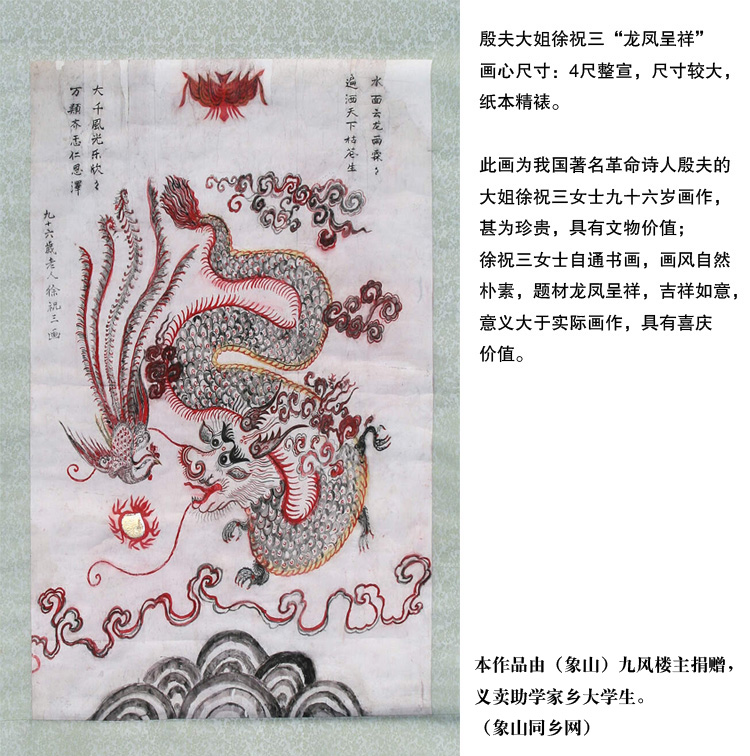 水面云龙雨霖々
遍洒天下枯生
大千風光乐欣々
万類齐仁恩澤
九十六歲老人徐祝三画
殷夫大姐徐祝三“龙凤呈祥”
画心尺寸：4尺整宣，尺寸较大，
纸本精裱。
此画为我国著名革命诗人殷夫的
大姐徐祝三女士九十六岁画作，
甚为珍贵，具有文物价值；
徐祝三女士自通书画，画风自然
朴素，题材龙凤呈祥，吉祥如意，
意义大于实际画作，具有喜庆
价值。
本作品由（象山）九风楼主捐赠，
义卖助学家乡大学生。
（象山同乡网）